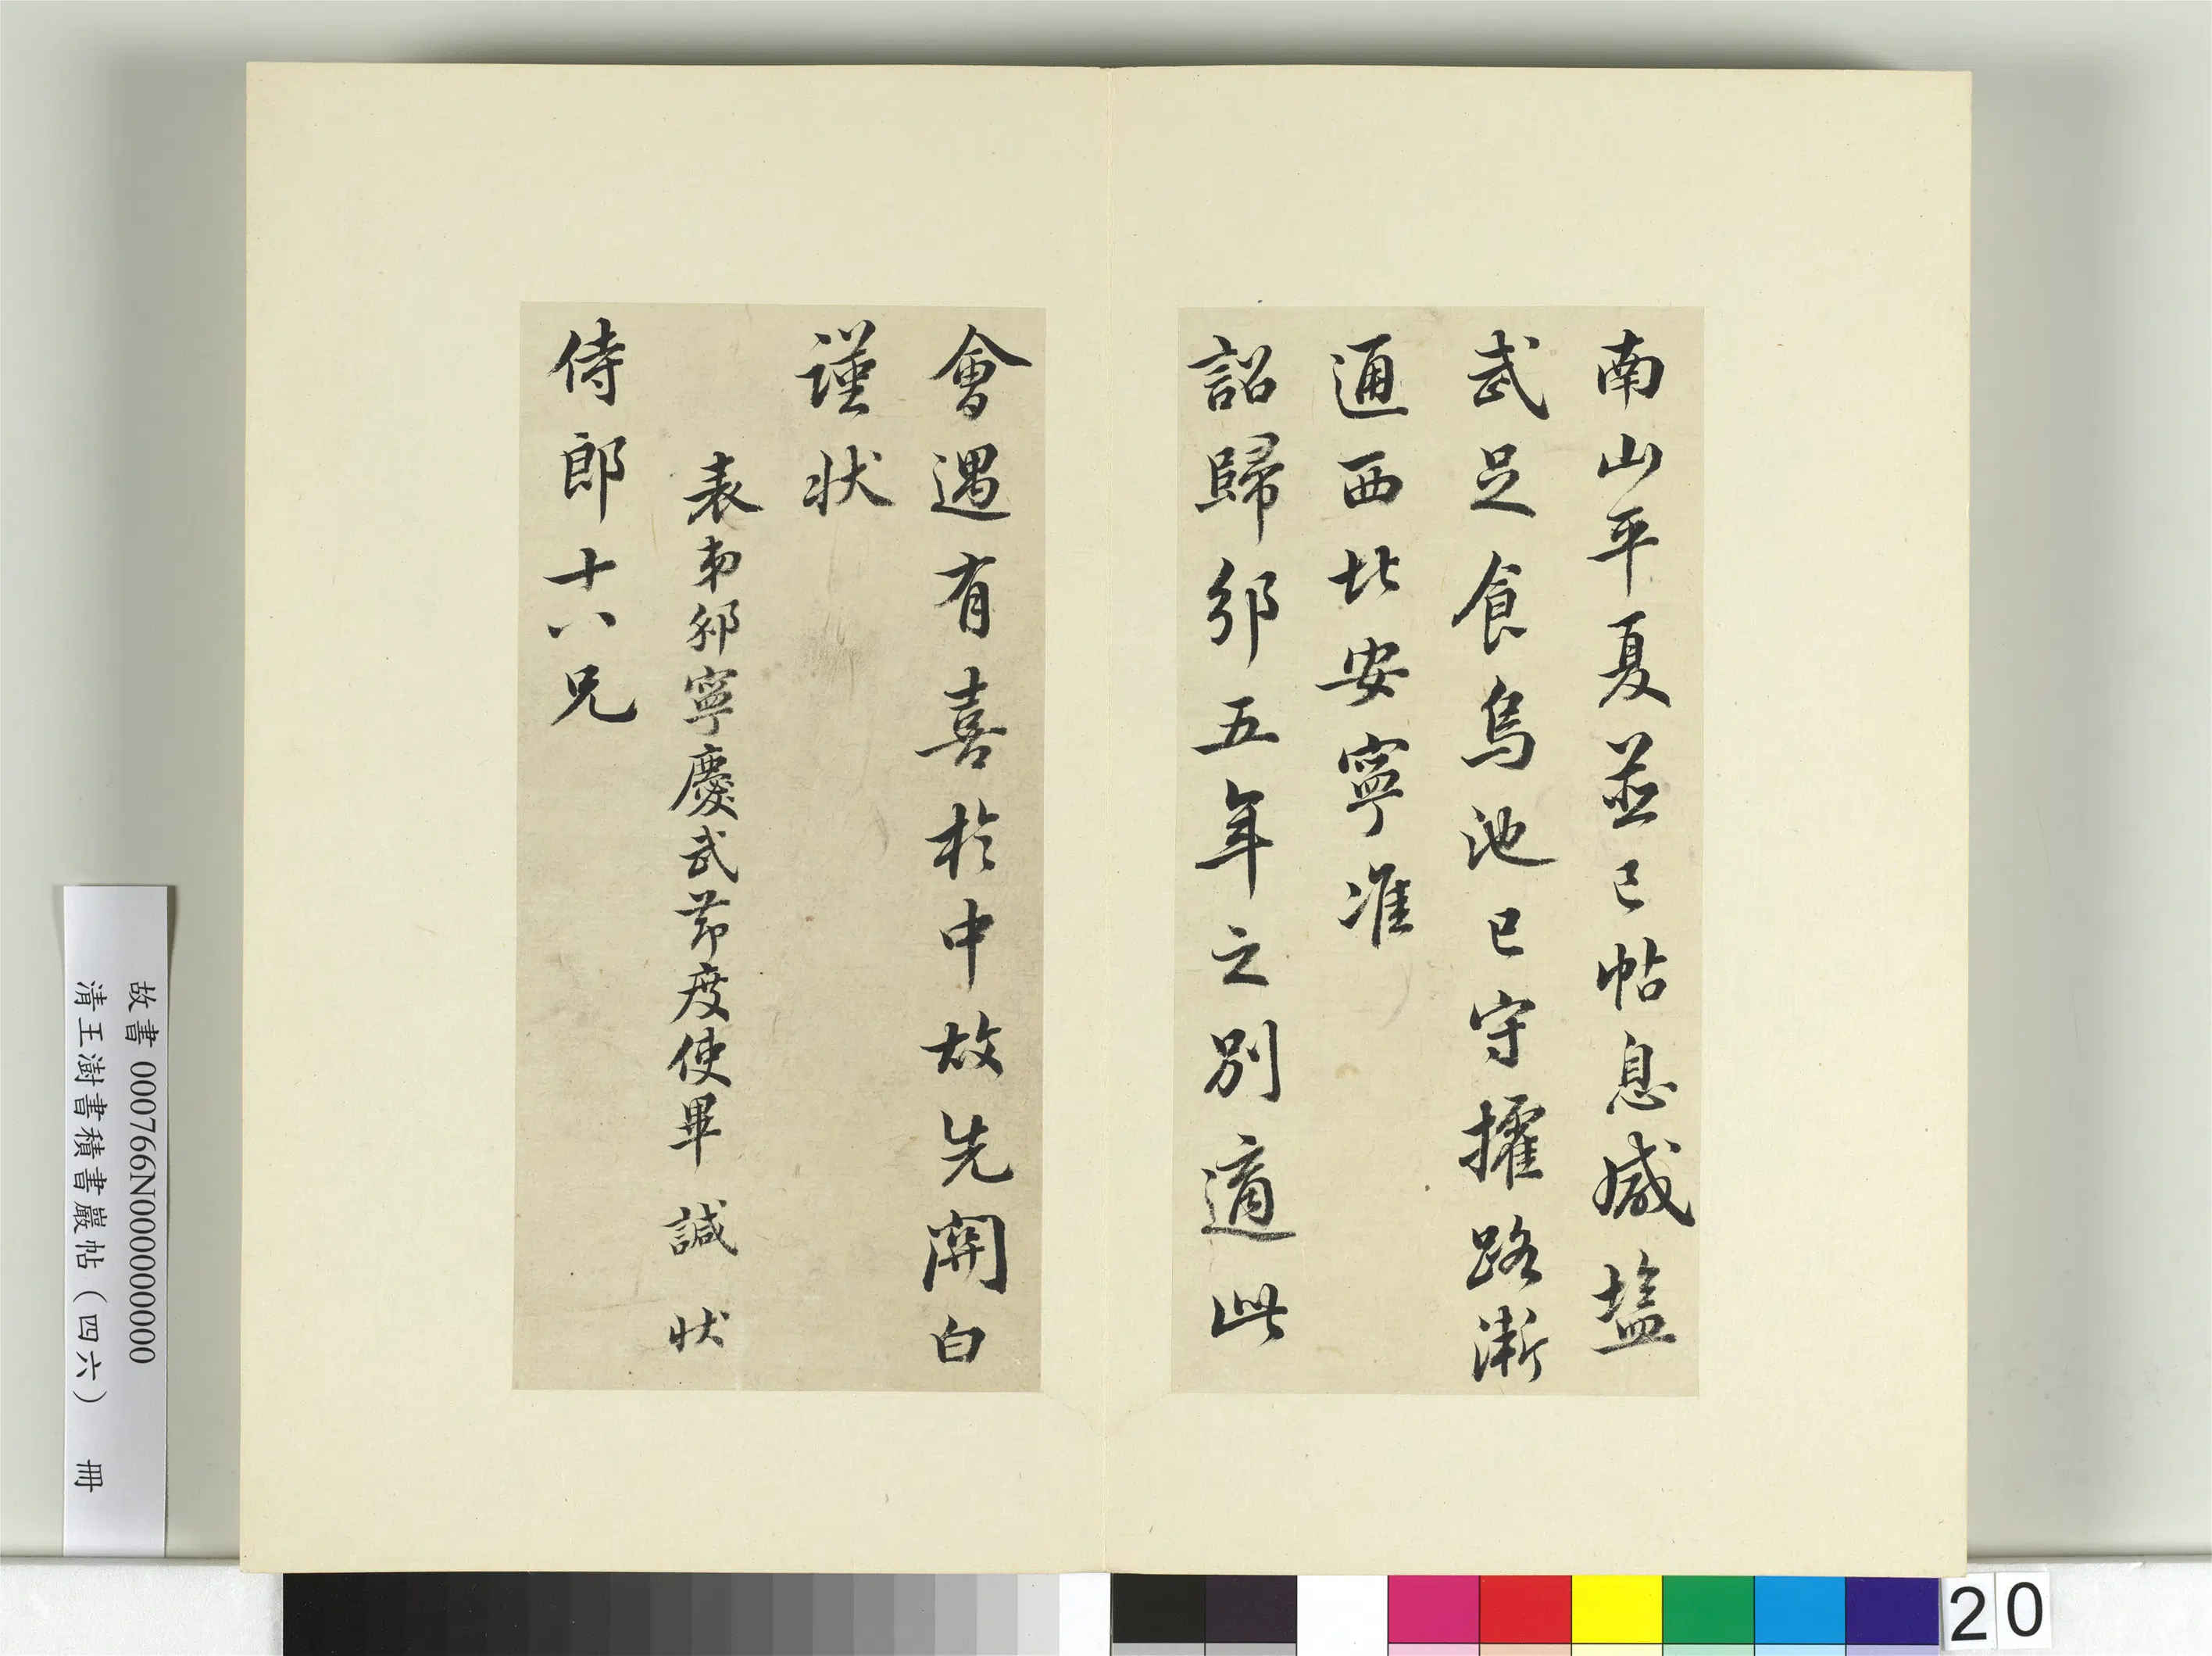 南山平夏並已帖息減塩
武足食烏池已守㩴路漸
通西北安寧准
詔歸邠五年之別適此
會遇有喜於中故先開白
謹状
表弟邠寧慶武節度使畢諴状
侍郎十八兄
故書 000766N000000000
清王澍書積書巖帖（四六） 冊
20